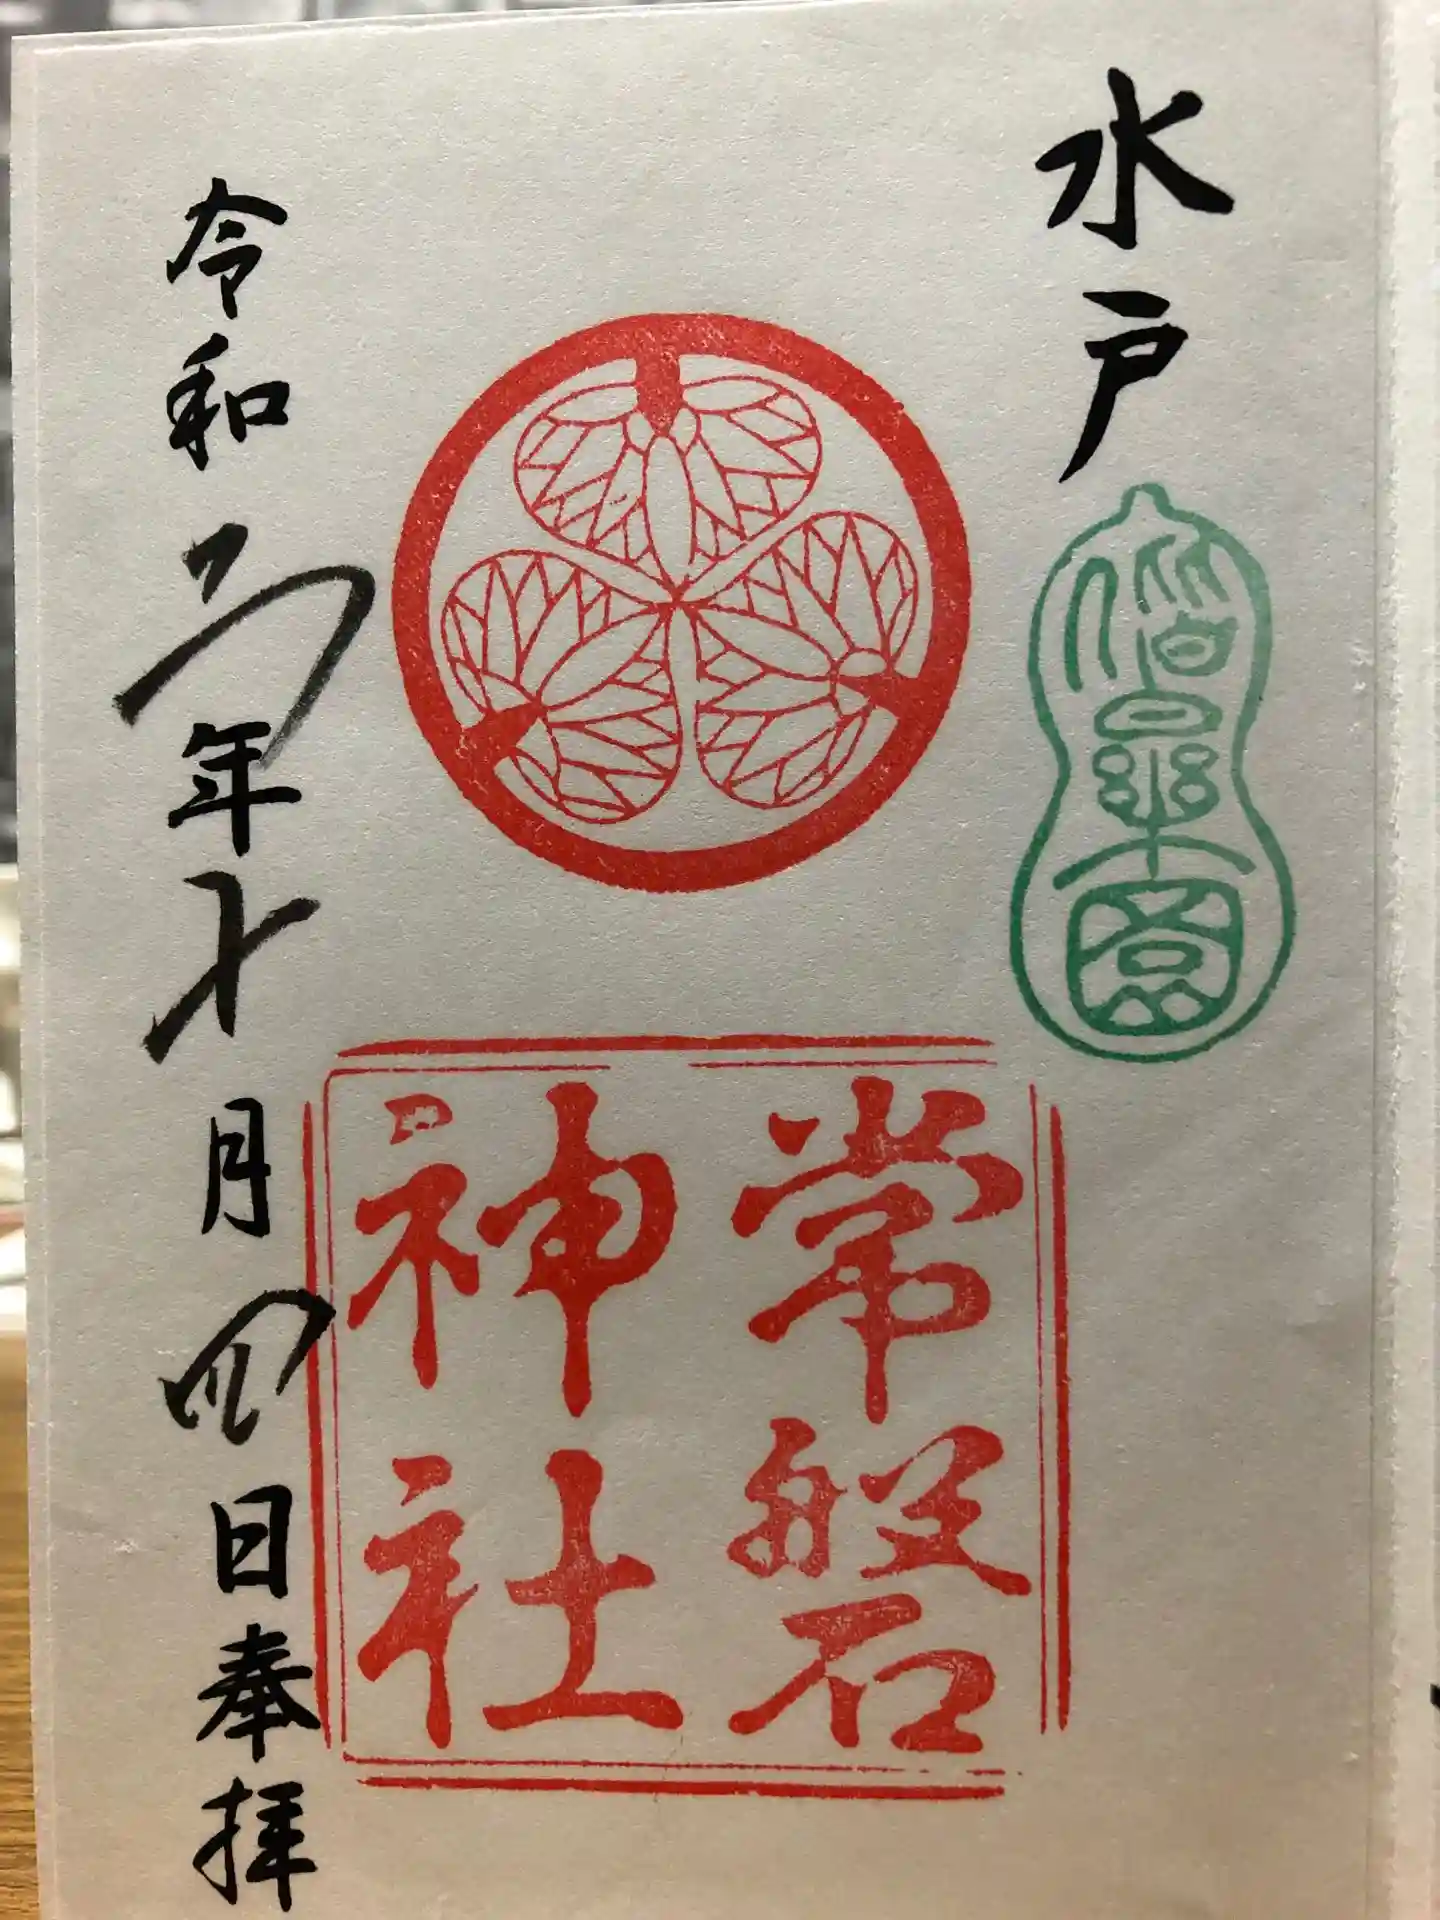 水戸
偕樂園
常磐
神社
令和 年 月四日奉拝